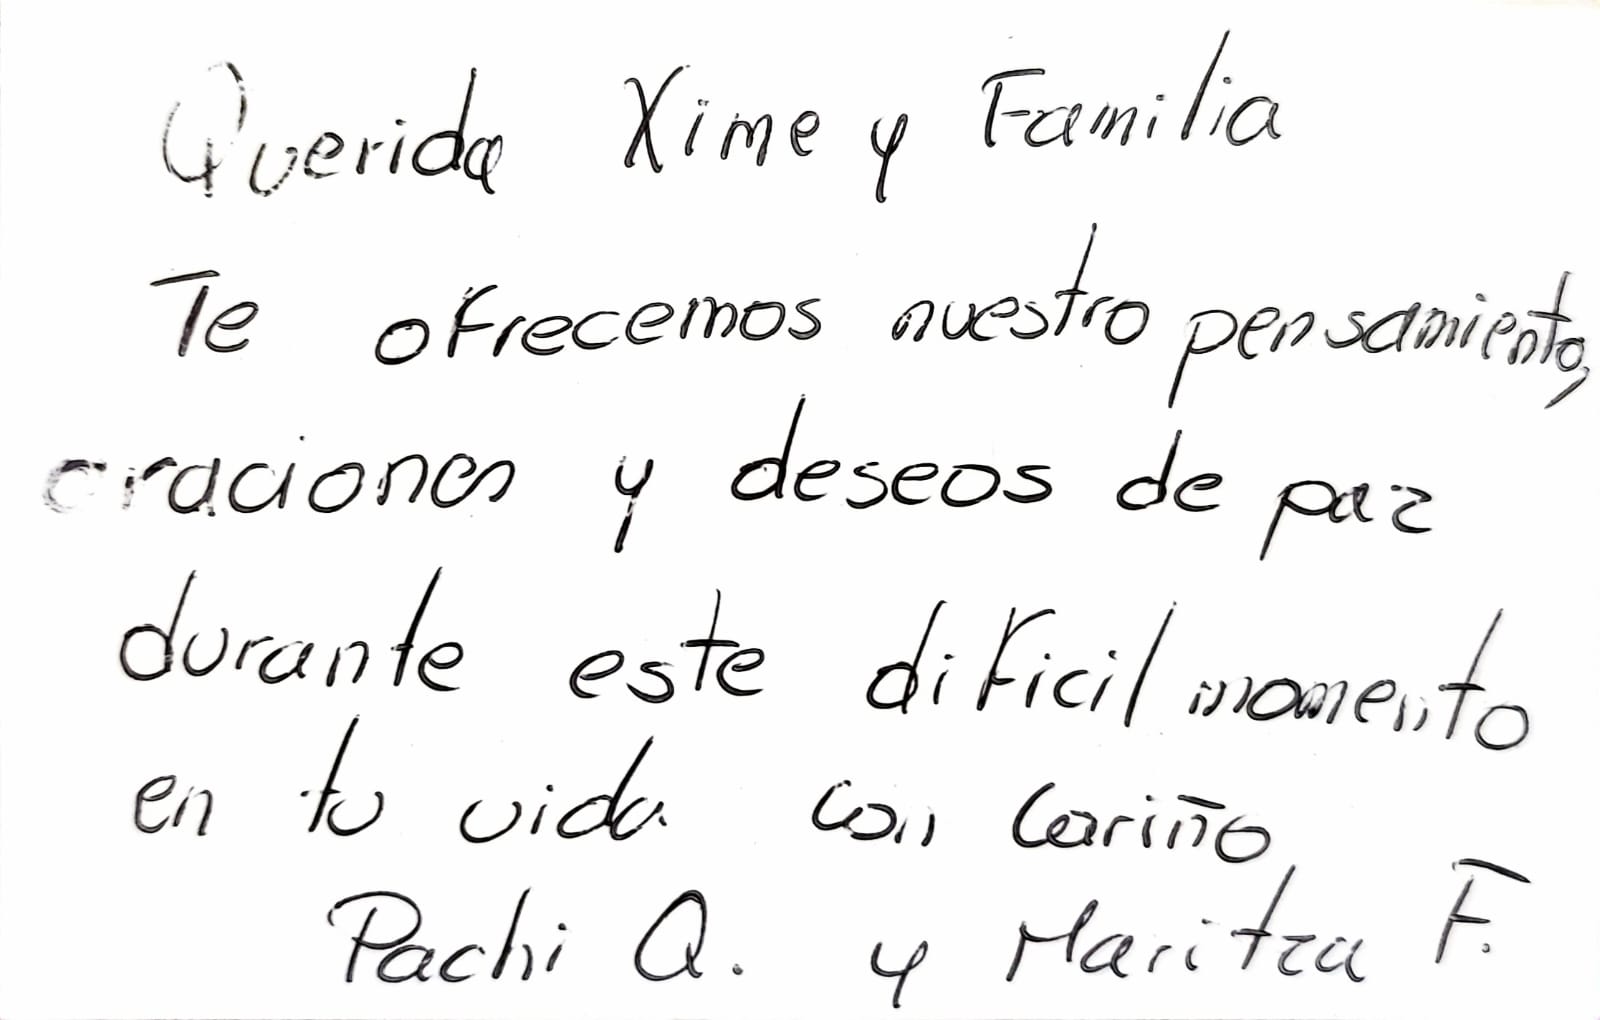 Querida Xime y Familia
Te ofrecemos nuestro pensamiento,
oraciones y deseos de paz
durante este dificil momento
en tu vida con Cariño
Pachi Q. y Maritza F.